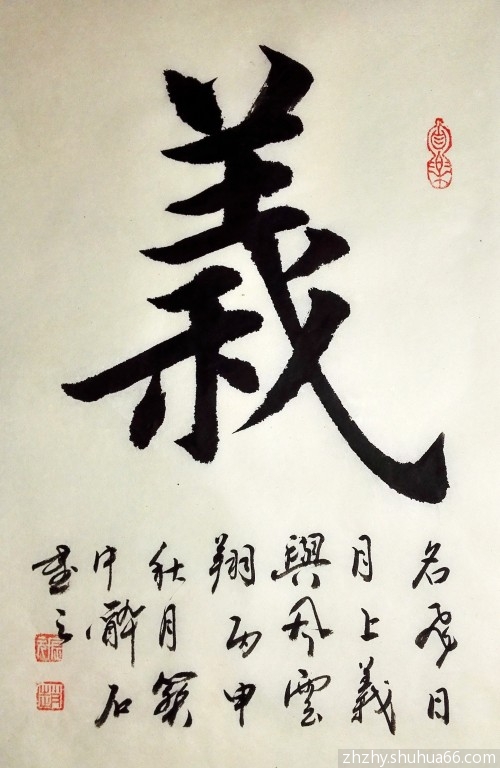 義
名飛日
月上義
與風雲
翔丙申
秋月冀
中醉石
書之
zhzhy.shuhua66.com